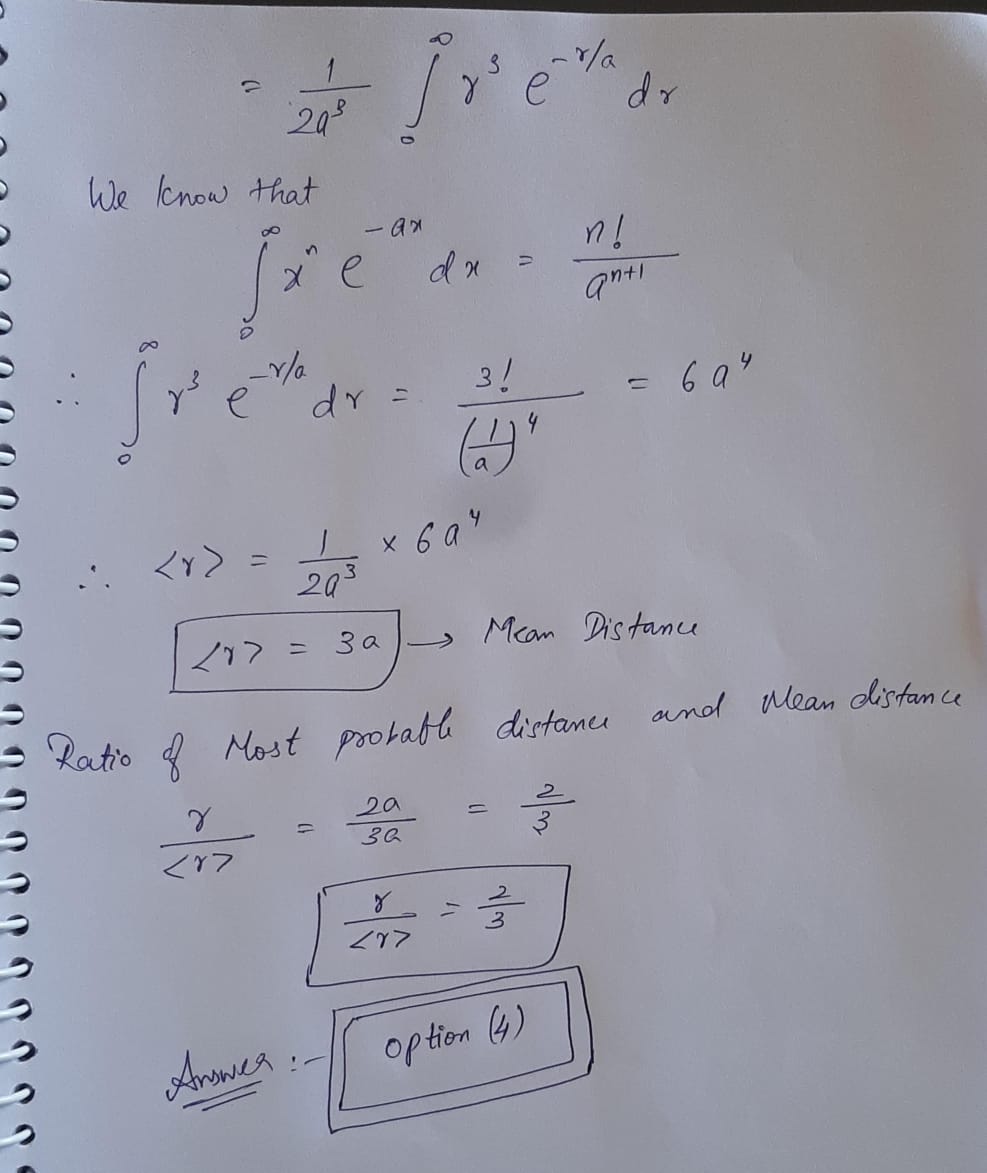 = 1/2a³ ∫₀^∞ r³ e^(-r/a) dr
We know that
∫₀^∞ xⁿ e^(-ax) dx = n!/aⁿ⁺¹
∴ ∫₀^∞ r³ e^(-r/a) dr = 3!/(1/a)⁴ = 6a⁴
∴ <r> = 1/2a³ × 6a⁴
<r> = 3a → Mean Distance
Ratio of Most probable distance and Mean distance
r/<r> = 2a/3a = 2/3
r/<r> = 2/3
Answer :- option (4)